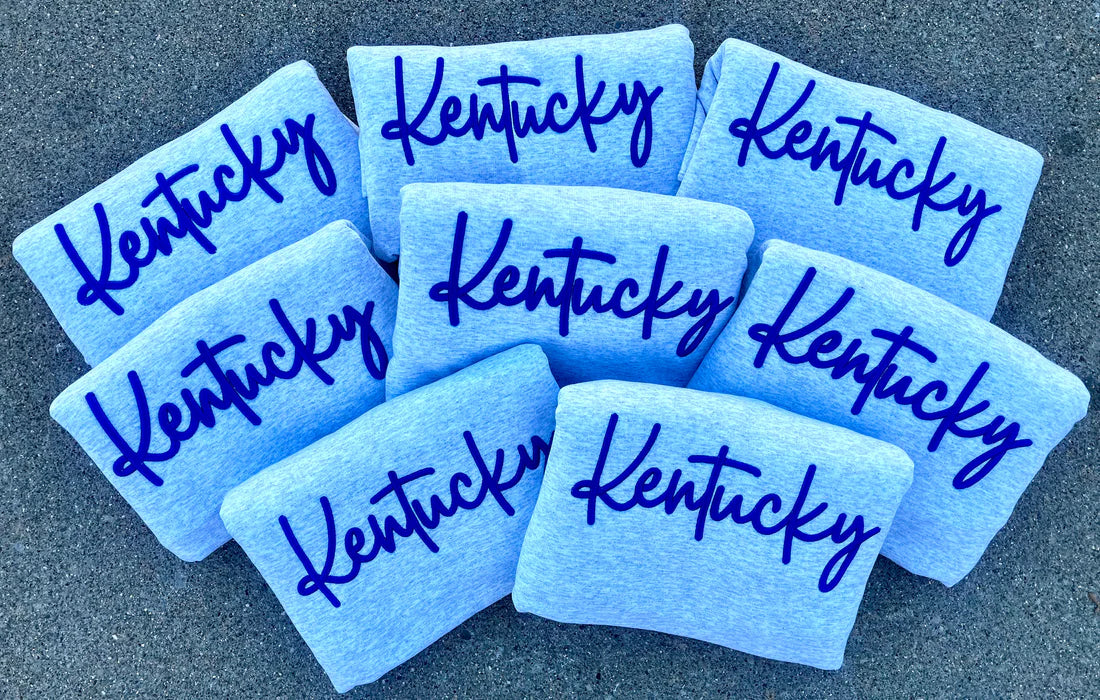 Kentucky
Kentucky
Kentucky
Kentucky
Kentucky
Kentucky
Kentucky
Kentucky